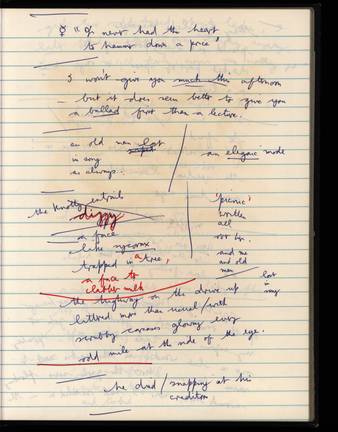 never had the heart
to hammer down a price"
I won't give you much this afternoon
— but it does seem better to give you
a ballad first than a lecture.
an old man lost
in song
as always.
an elegaic mode
the knotty entrails
dizzy
a face
like sycorax
trapped in a tree,
a face to
clabber milk
'picnic'
written
all
and me
and old
man lost
in song
the highway on the drive up
littered more than usual / with
scrubby corpses glowing every
odd mile at the side of the eye.
the dead / snapping at his